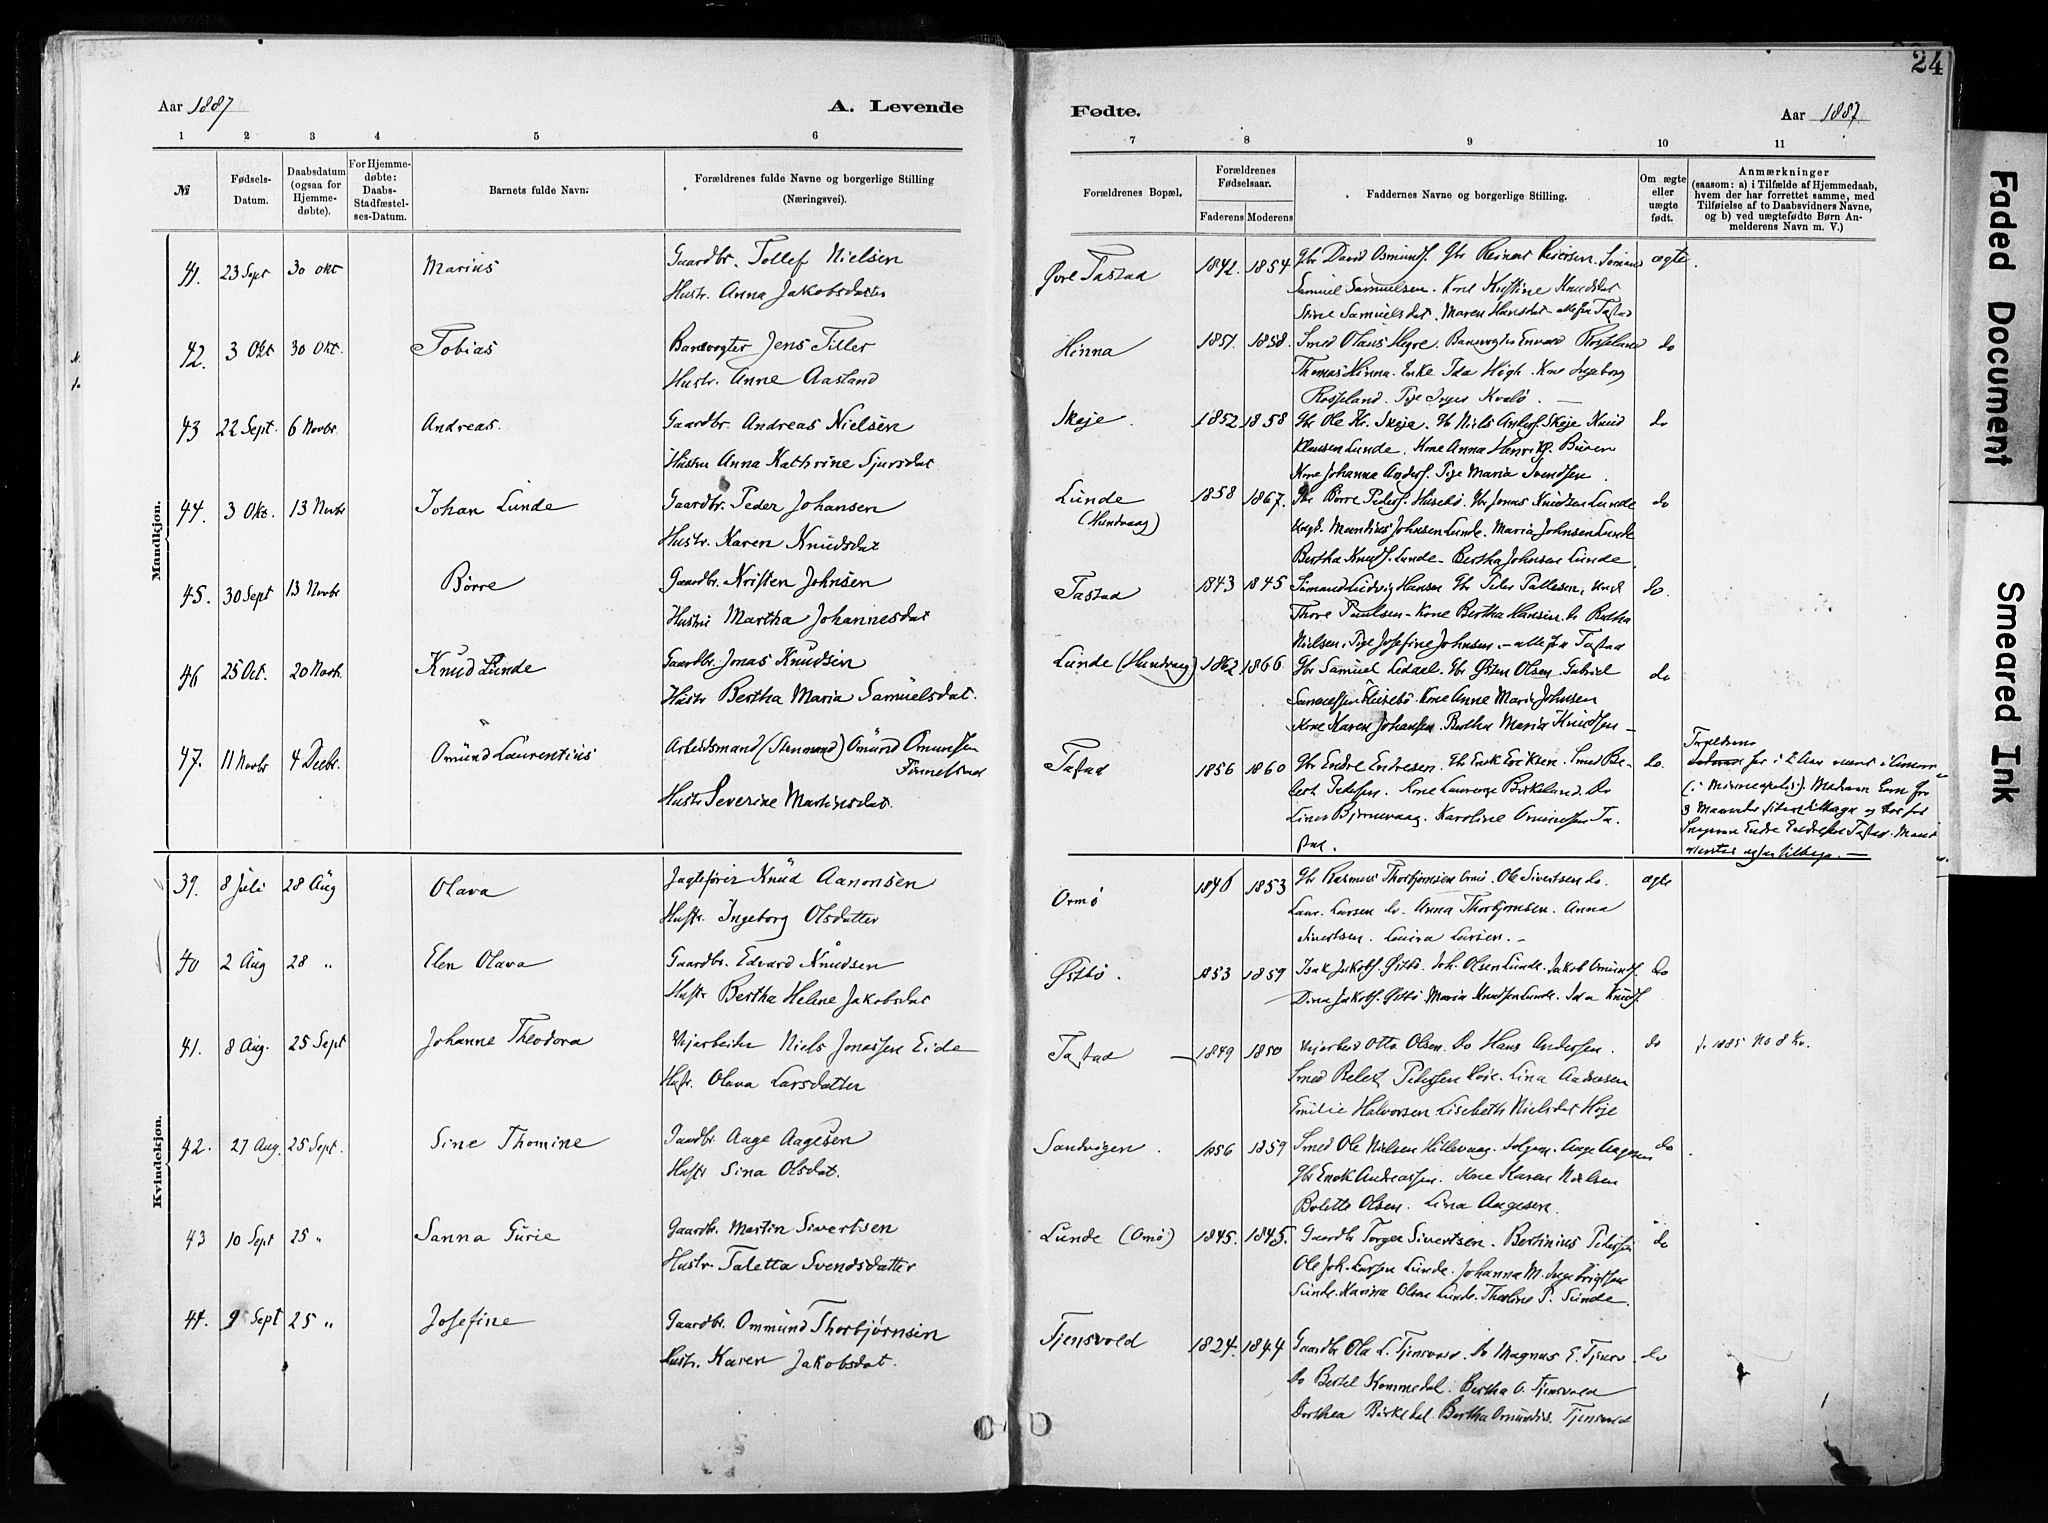 24
Aar 1887
A. Levende
Fødte.
Aar 1887.
1 2 3 4 5 6 7 8 9 10 11
№
Fødsels-Datum.
Daabsdatum (ogsaa for Hjemmedøbte).
For Hjemmedøbte: Daabs-Stadfæstelses-Datum.
Barnets fulde Navn.
Forældrenes fulde Navne og borgerlige Stilling
(Næringsvei).
Forældrenes Bopæl.
Forældrenes Fødselsaar.
Faderens Moderens
Faddernes Navne og borgerlige Stilling.
Om ægte eller uægte født.
Anmærkninger
(saasom: a) i Tilfælde af Hjemmedaab, hvem der har forrettet samme, med Tilføielse af to Daabsvidners Navne, og b) ved uægtefødte Børn Anmelderens Navn m. V.)
Mandkjøn.
41. 23 Sept 30 Okt Marius Gaardbr. Tollef Nielsen
Hustr. Anna Jakobsdatter
Øvre Tastad 1842. 1854 Gbr David Osmunds. Gbr Reinar Reiersen. Sømand ægte.
Samuel Samuelsen. Kone Kristine Knudsdat
Stine Samuelsdat. Maren Hansdat alle fra Tastad
42. 3 Okt 30 Okt. Tobias Banevogter Jens Tiller
Hustr. Anne Aasland
Hinna 1851. 1858. Smed Olaus Hegre. Banevogter Rosseland do
Thomas Hinna. Enke Ida Høgh. Kone Ingeborg
Rosseland. Pige Inger Kvalø.
43 22 Sept. 6 Novbr. Andreas. Gaardbr. Andreas Nielsen
Hustru Anna Kathrine Sjursdat.
Skeje. 1852 1858 Gbr Ole Kr. Skeje. Gb Niels Anders. Skeje Knud do
Klausen Lunde. Kone Anna Henriks. Buøen
Kone Johanna Anders. Pige Maria Svendsen.
44. 3 Okt. 13 Novbr Johan Lunde Gaardbr. Peder Johansen
Hustr. Karen Knudsdat
Lunde (Hundvaag) 1858 1867. Gbr Børre Peders. Husebø. Gbr Jonas Knudsen Lunde do
Ungk. Mandius Johnsen Lunde. Maria Johnsen Lunde
Bertha Knuds. Lunde. Bertha Johnsen Lunde.
45. 30 Sept 13 Novbr Børre Gaardbr. Kristen Johnsen
Hustru Martha Johannesdat
Tastad 1843 1845 Sømand Ludvig Hansen Gbr Peder Pallesen, Ungk do.
Thore Paulsen - Kone Bertha Hansen do Bertha
Nielsen. Pige Josefine Johnsen. - alle fra Tastad
46 25 Oct. 20 Novb. Knud Lunde Gaardbr. Jonas Knudsen
Hustr Bertha Maria Samuelsdat.
Lunde (Hundvaag) 1862. 1866. Gbr Samuel Ledaal. Gbr Østen Olsen. Gabriel do
Samuelsen Husebø. Kone Anne Marie Johnsen
Kone Karen Johansen. Bertha Maria Knudsen -
47. 11 Novbr 4 Decbr. Omund Laurentius Arbeidsmand (Stenmand) Omund Omundsen
Hustr Severine Martinsdat.
Tastad 1856 1860 Gbr Endre Endresen. Gbr Enok Eriksen. Smed Be- do.
Pedersen. Kone Laurence Birkeland. Do
Lina Bjørnevaag. Karoline Omundsen Ta-
stad.
Forældrene
for i 2 Aar været i Amer-
(i Minneapolis).
3 Maaneder siden tilbage
Endre Endresen Tastad.
tilbage. -
Kvindekjøn.
39. 8 Juli 28 Aug Olava Jagtefører Knud Aanonsen
Hustr. Ingeborg Olsdatter
Ormø 1846 1853 Gbr Rasmus Thorbjørnsen Ormø. Ole Sivertsen do. ægte
Laur. Larsen do. Anna Thorbjørnsen. Anna
Sivertsen. Laura Larsen. -
40 2 Aug 28 „ Elen Olava Gaardbr. Edvard Knudsen
Hustr Bertha Helene Jakobsdat
Østbø. 1853 1859 Isak Jakobs. Østbø. Joh. Olsen Lunde. Jakob Omunds. do
Dina Jakobs. Østbø Maria Knudsen Lunde. Ida Knuds.
41. 8 Aug. 25 Sept Johanne Theodora Vejarbeider Niels Jonassen Eide
Hustr. Olava Larsdatter
Tastad 1849 1850 Vejarbeid Otto Olsen. Do Hans Andersen. do f. 1885 No 8 Kv.
Smed Pedersen Høie. Lina Andresen
Emilie Halvorsen Lisebeth Nielsdat Høje
42. 27 Aug. 25 Sept. Sine Thomine Gaardbr. Aage Aagesen
Hustr Sina Olsdat.
Sandvigen. 1856 1859 Smed Ole Nielsen Hillevaag. Aage Aagesen do
Gbr Enok Andreassen. Kone Karen Nielsen
Bolette Olsen. Lina Aagesen.
43 10 Sept 25 „ Sanna Gurie Gaardbr. Martin Sivertsen
Hustr. Taletta Svendsdatter
Lunde (Ormø) 1845. 1845. Gaardbr Torger Sivertsen. Bertinius Pedersen do
Ole Joh. Larsen Lunde. Johanna M. Ingebrigtsen
Lunde. Karina Olsen Lunde. Thaline P. Sunde.
44. 9 Sept 25 „ Josefine Gaardbr. Ommund Thorbjørnsen
Hustr. Karen Jakobsdat.
Tjensvold 1824. 1844 Gaardbr Ola L. Tjensvold. Do Magnus E. Tjensv. do
Do Bertel Kommedal. Bertha O. Tjensvold
Dorthea Birkedal. Bertha Omundsd. Tjensvold
Faded Document
Smeared Ink